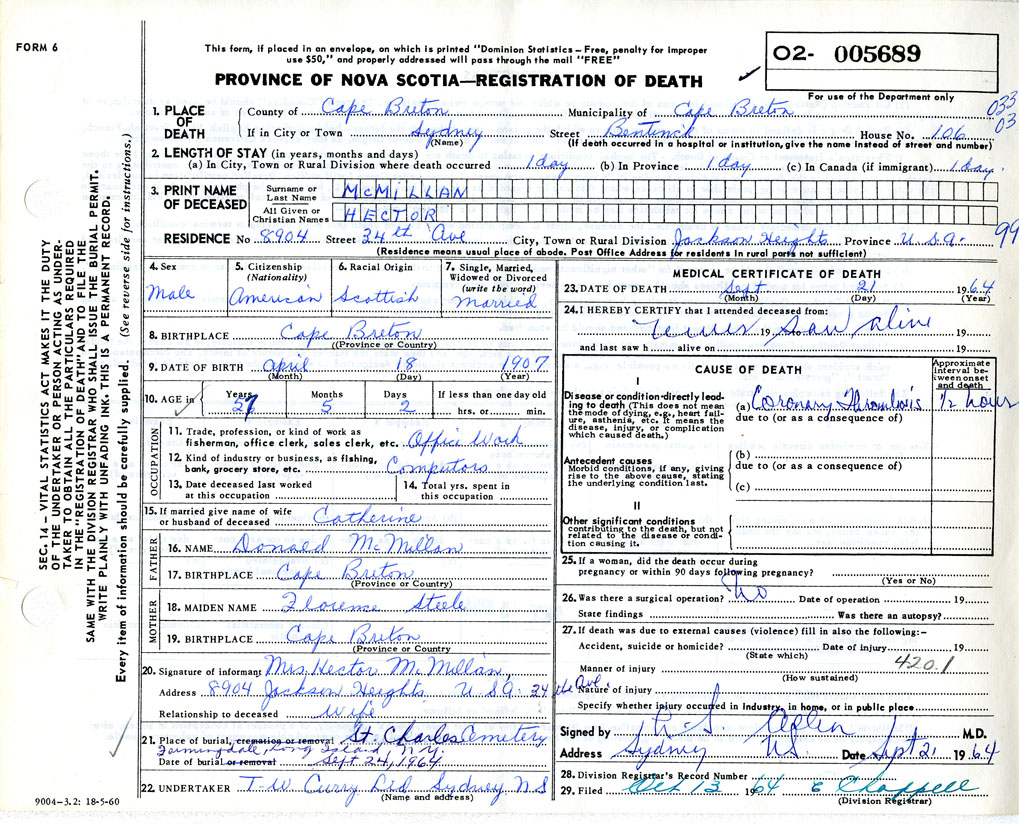 FORM 6
This form, if placed in an envelope, on which is printed "Dominion Statistics – Free, penalty for improper
use $50," and properly addressed will pass through the mail "FREE"
PROVINCE OF NOVA SCOTIA—REGISTRATION OF DEATH
O2- 005689
For use of the Department only
033
03
1. PLACE OF DEATH
County of Cape Breton Municipality of Cape Breton
If in City or Town Sydney Street Bentinck House No. 106
(Name) (If death occurred in a hospital or institution, give the name instead of street and number)
2. LENGTH OF STAY (in years, months and days)
(a) In City, Town or Rural Division where death occurred 1 day (b) In Province 1 day (c) In Canada (if immigrant) 1 day
3. PRINT NAME OF DECEASED
Surname or Last Name McMILLAN
All Given or Christian Names HECTOR
RESIDENCE No 8904 Street 34th Ave City, Town or Rural Division Jackson Heights Province U.S.A.
99
(Residence means usual place of abode. Post Office Address for residents in rural parts not sufficient)
4. Sex
Male
5. Citizenship
(Nationality)
American
6. Racial Origin
Scottish
7. Single, Married,
Widowed or Divorced
(write the word)
Married
8. BIRTHPLACE Cape Breton
(Province or Country)
9. DATE OF BIRTH April 18 1907
(Month) (Day) (Year)
10. AGE in
Years Months Days If less than one day old
57 5 2 hrs. or min.
OCCUPATION
11. Trade, profession, or kind of work as
fisherman, office clerk, sales clerk, etc. Office Work
12. Kind of industry or business, as fishing,
bank, grocery store, etc. Computors
13. Date deceased last worked
at this occupation
14. Total yrs. spent in
this occupation
15. If married give name of wife
or husband of deceased Catherine
FATHER
16. NAME Donald McMillan
17. BIRTHPLACE Cape Breton
(Province or Country)
MOTHER
18. MAIDEN NAME Florence Steele
19. BIRTHPLACE Cape Breton
(Province or Country)
20. Signature of informant Mrs Hector McMillan,
Address 8904 Jackson Heights U.S.A. 34 the Ave.
Relationship to deceased Wife
21. Place of burial, cremation or removal St. Charles Cemetery
Farmingdale, Long Island, N.Y.
Date of burial or removal Sept 24, 1964
22. UNDERTAKER T.W Curry Ltd Sydney NS
(Name and address)
9004–3.2: 18-5-60
MEDICAL CERTIFICATE OF DEATH
23. DATE OF DEATH Sept 21 1964
(Month) (Day) (Year)
24. I HEREBY CERTIFY that I attended deceased from:
Never 19 saw alive 19
and last saw h alive on 19
CAUSE OF DEATH
Approximate
interval be-
tween onset
and death
I
Disease or condition directly lead-
ing to death (This does not mean
the mode of dying, e.g., heart fail-
ure, asthenia, etc. It means the
disease, injury, or complication
which caused death.)
(a) Coronary Thrombosis 1/2 hours
due to (or as a consequence of)
Antecedent causes
Morbid conditions, if any, giving
rise to the above cause, stating
the underlying condition last.
(b)
due to (or as a consequence of)
(c)
II
Other significant conditions
contributing to the death, but not
related to the disease or condi-
tion causing it.
25. If a woman, did the death occur during
pregnancy or within 90 days following pregnancy?
(Yes or No)
26. Was there a surgical operation? No Date of operation 19
State findings Was there an autopsy?
27. If death was due to external causes (violence) fill in also the following:–
Accident, suicide or homicide? Date of injury 19
(State which)
420.1
Manner of injury
(How sustained)
Nature of injury
Specify whether injury occurred in industry, in home, or in public place
Signed by M.D.
Address Sydney NS. Date Sept 21 1964
28. Division Registrar's Record Number
29. Filed Oct 13 1964 E Chappell
(Division Registrar)
SEC. 14 – VITAL STATISTICS ACT MAKES IT THE DUTY
OF THE UNDERTAKER OR PERSON ACTING AS UNDER-
TAKER TO OBTAIN ALL THE PARTICULARS REQUIRED
IN THE "REGISTRATION OF DEATH" AND TO FILE THE
SAME WITH THE DIVISION REGISTRAR WHO SHALL ISSUE THE BURIAL PERMIT.
WRITE PLAINLY WITH UNFADING INK. THIS IS A PERMANENT RECORD.
Every item of information should be carefully supplied. (See reverse side for instructions.)